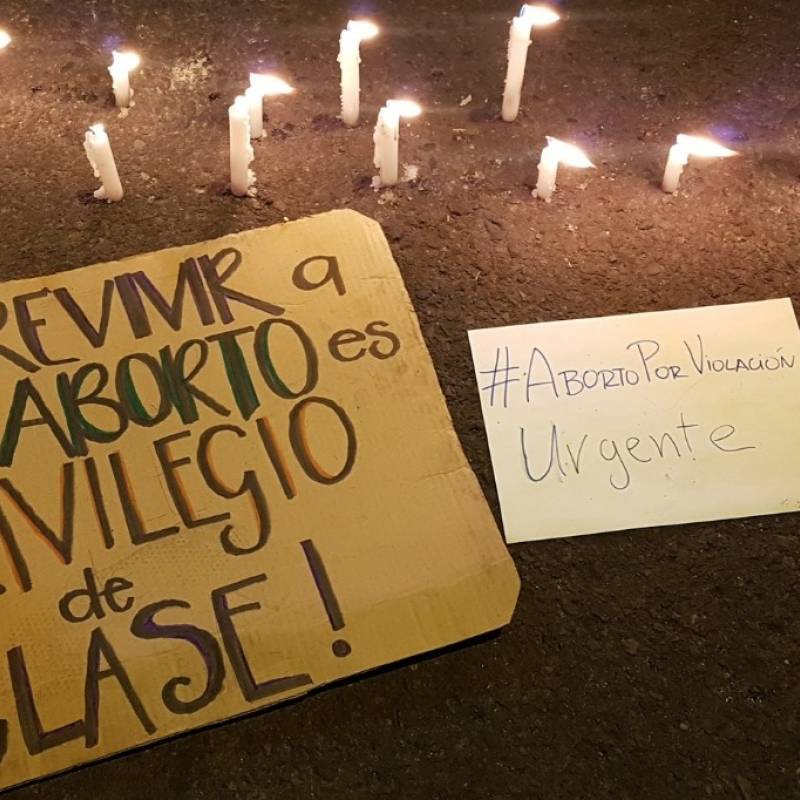 REVIVIR a
ABORTO es
IVILEGIO
de
LASE!
#ABORTOPORVIOLACIÓN
Urgente